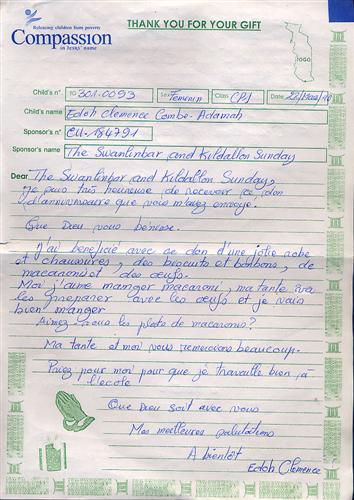 Releasing children from poverty
Compassion
in Jesus' name
THANK YOU FOR YOUR GIFT
TOGO
Child's n° TG 301-0093 Sex Feminin Class CP1 Date 22/Mar/10
Child's name Edoh Clemence Combe-Adamah
Sponsor's n° CU-184791
Sponsor's name The Swanlinbar and Kildallon Sunday
Dear The Swanlinbar and Kildallon Sunday,
je suis très heureuse de recevoir ce don
d'anniversaire que vous m'avez envoyé.
Que Dieu vous bénisse.
J'ai beneficié avec ce don d'une jolie robe
et chaussures, des biscuits et bonbons, de
macaroni et des œufs.
Moi j'aime manger macaroni, ma tante va
les preparer avec les œufs et je vais
bien manger
Aimez-vous les plats de macaronis?
Ma tante et moi vous remercions beaucoup.
Priez pour moi pour que je travaille bien à
l'ecole
Que Dieu soit avec vous
Mes meilleures salutations
A bientôt
Edoh Clemence